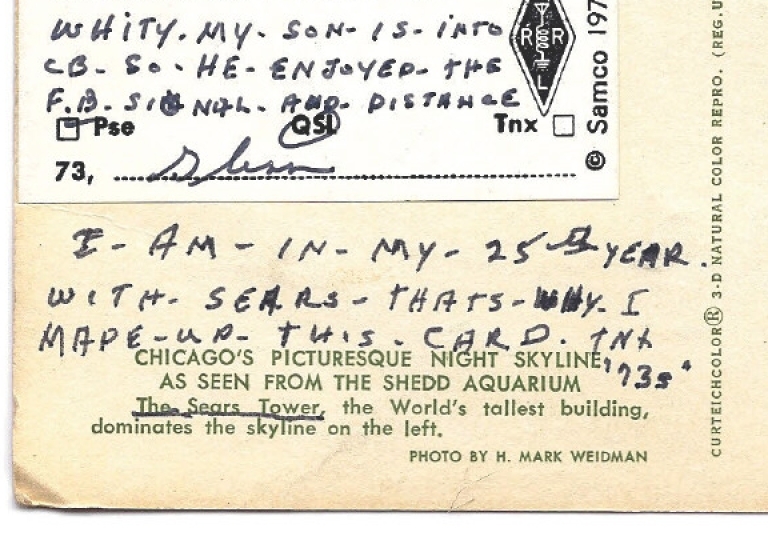 WHITY. MY. SON. IS. INTO
CB- SO- HE- ENJOYED- THE
F.B- SIGNAL. AND- DISTANCE
Pse QSL Tnx
73, Glenn
R R
L
© Samco 197
I- AM- IN- MY- 25th YEAR.
WITH- SEARS- THATS- WHY. I
MADE-UP- THIS. CARD. TNX
"73s"
CHICAGO'S PICTURESQUE NIGHT SKYLINE
AS SEEN FROM THE SHEDD AQUARIUM
The Sears Tower, the World's tallest building,
dominates the skyline on the left.
PHOTO BY H. MARK WEIDMAN
CURTEICHCOLOR® 3-D NATURAL COLOR REPRO. (REG.U